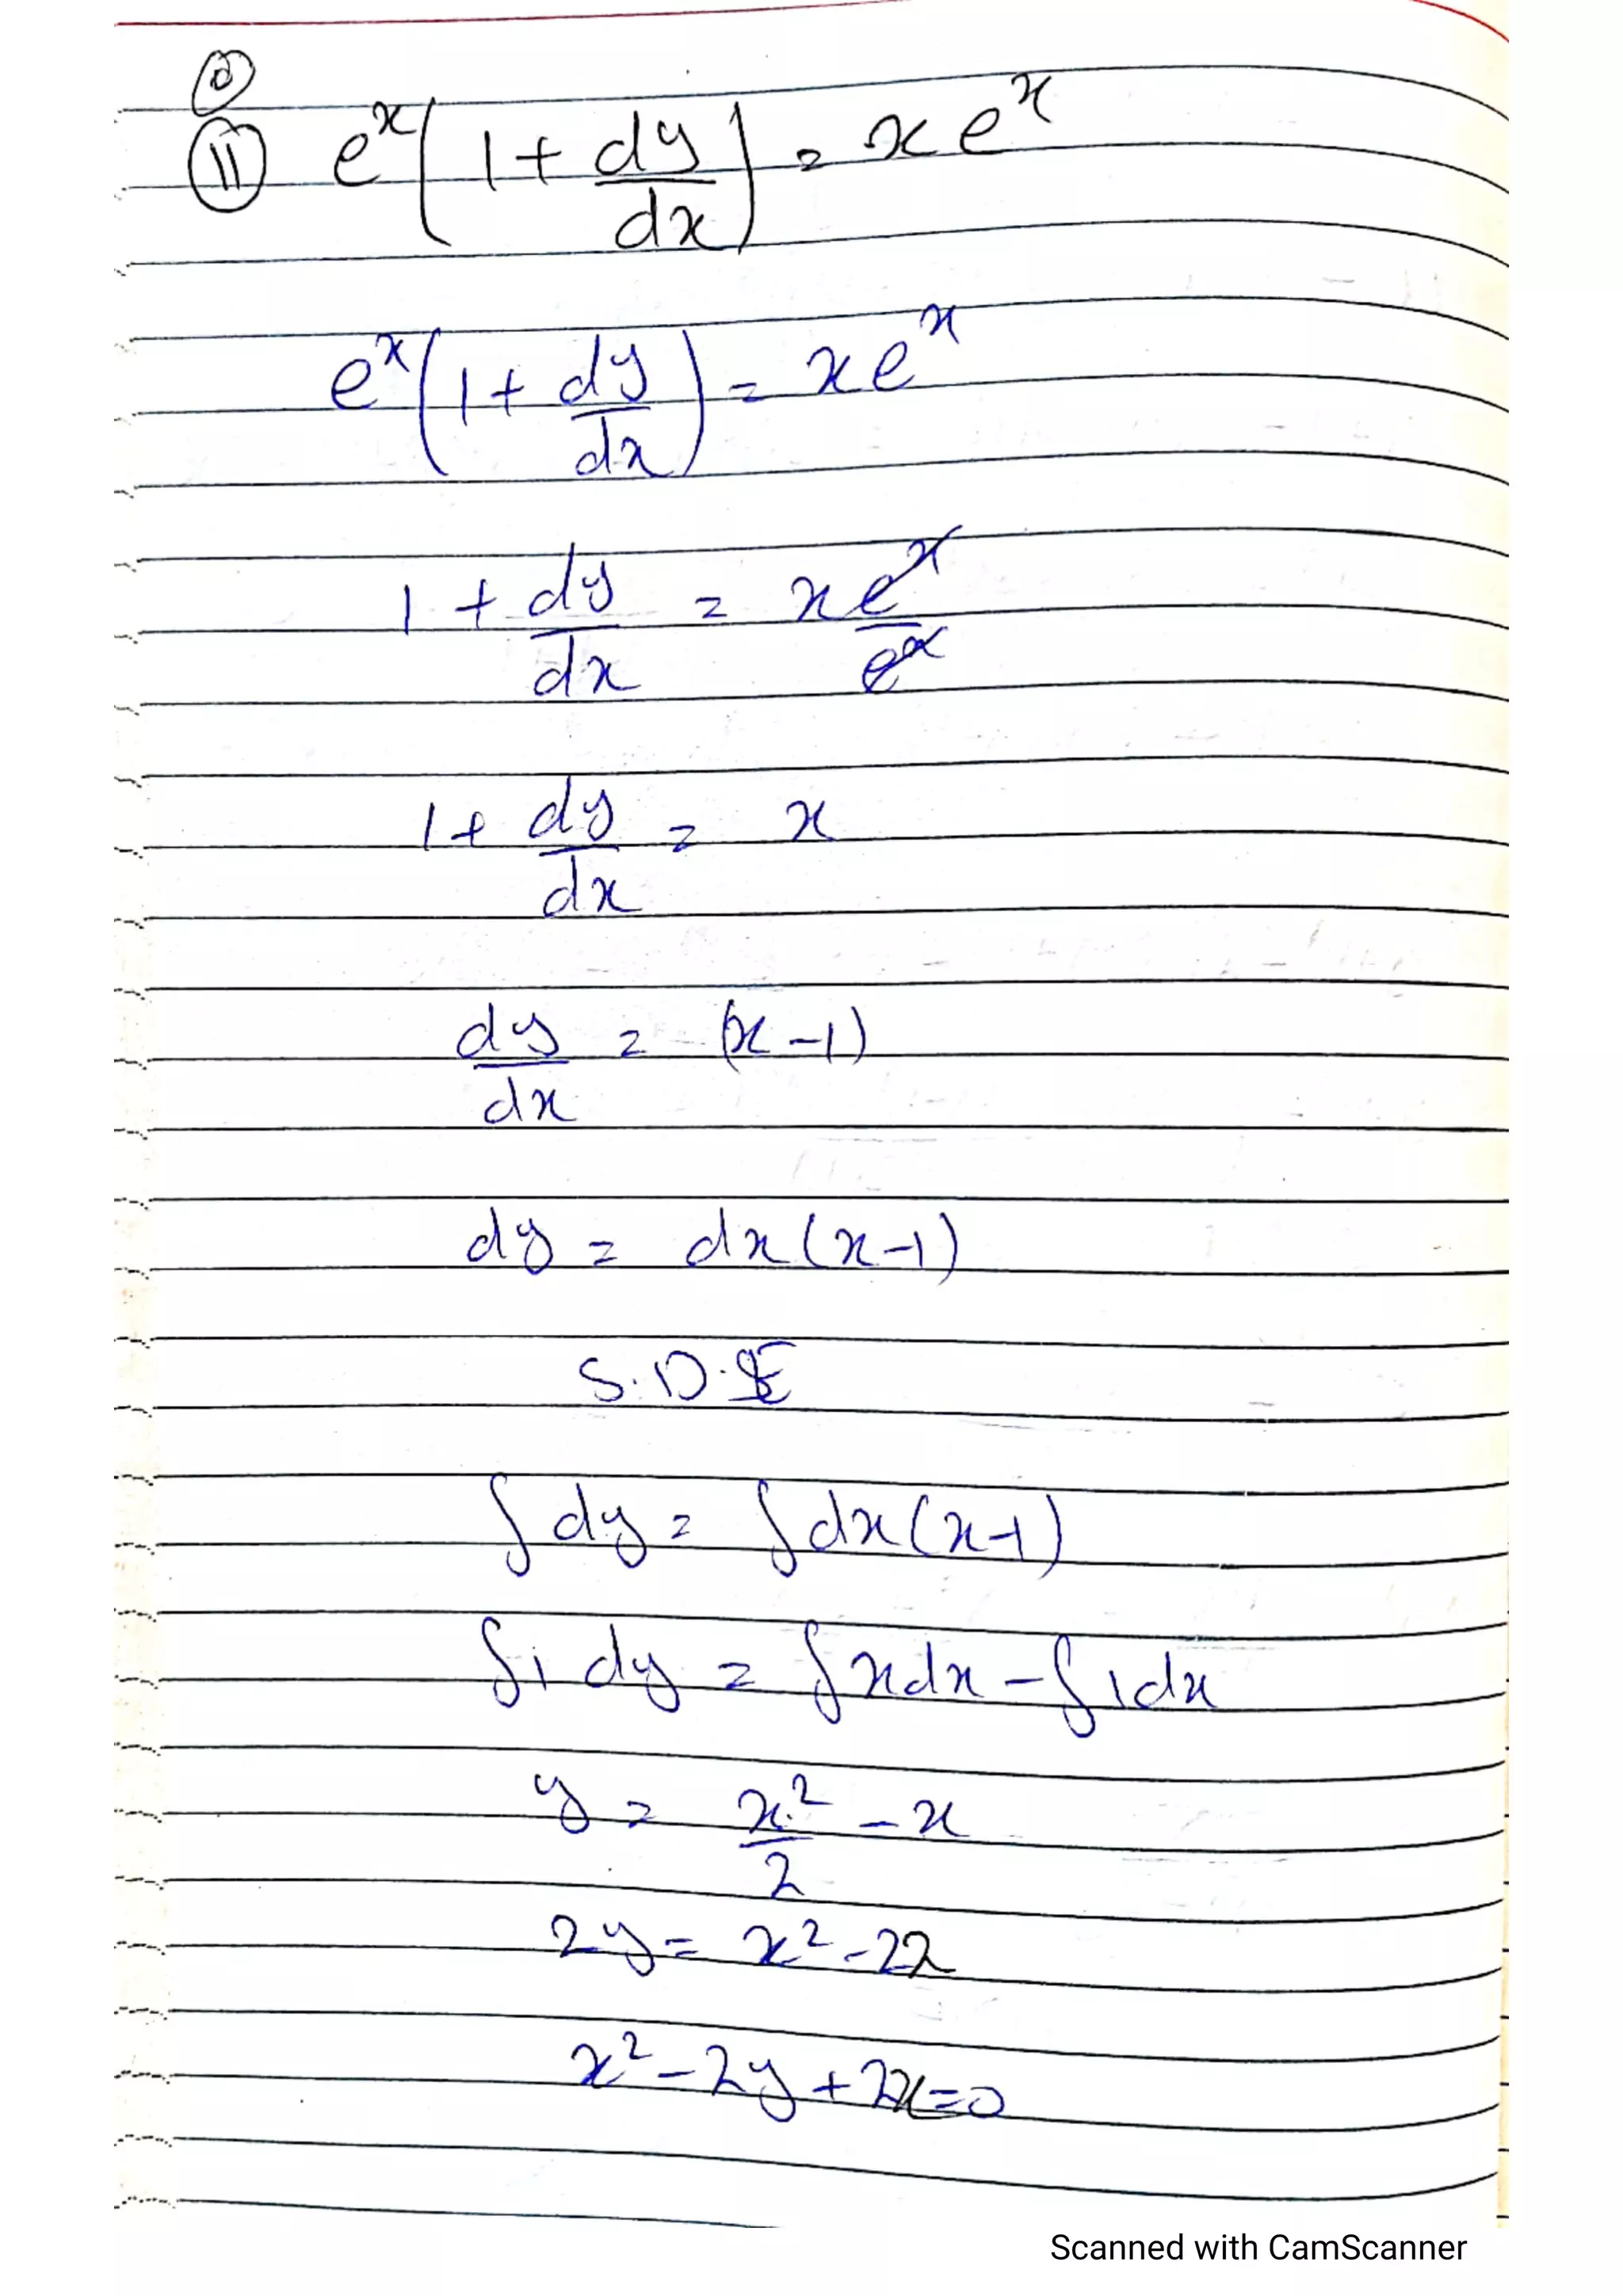 d
11 e^x (1 + dy/dx) = x e^x
e^x (1 + dy/dx) = x e^x
1 + dy/dx = x e^x/e^x
1 + dy/dx = x
dy/dx = (x - 1)
dy = dx (x - 1)
S.D.E
∫ dy = ∫ dx (x - 1)
∫ 1 dy = ∫ x dx - ∫ 1 dx
y = x^2/2 - x
2y = x^2 - 2x
x^2 - 2y + 2x = 0
Scanned with CamScanner